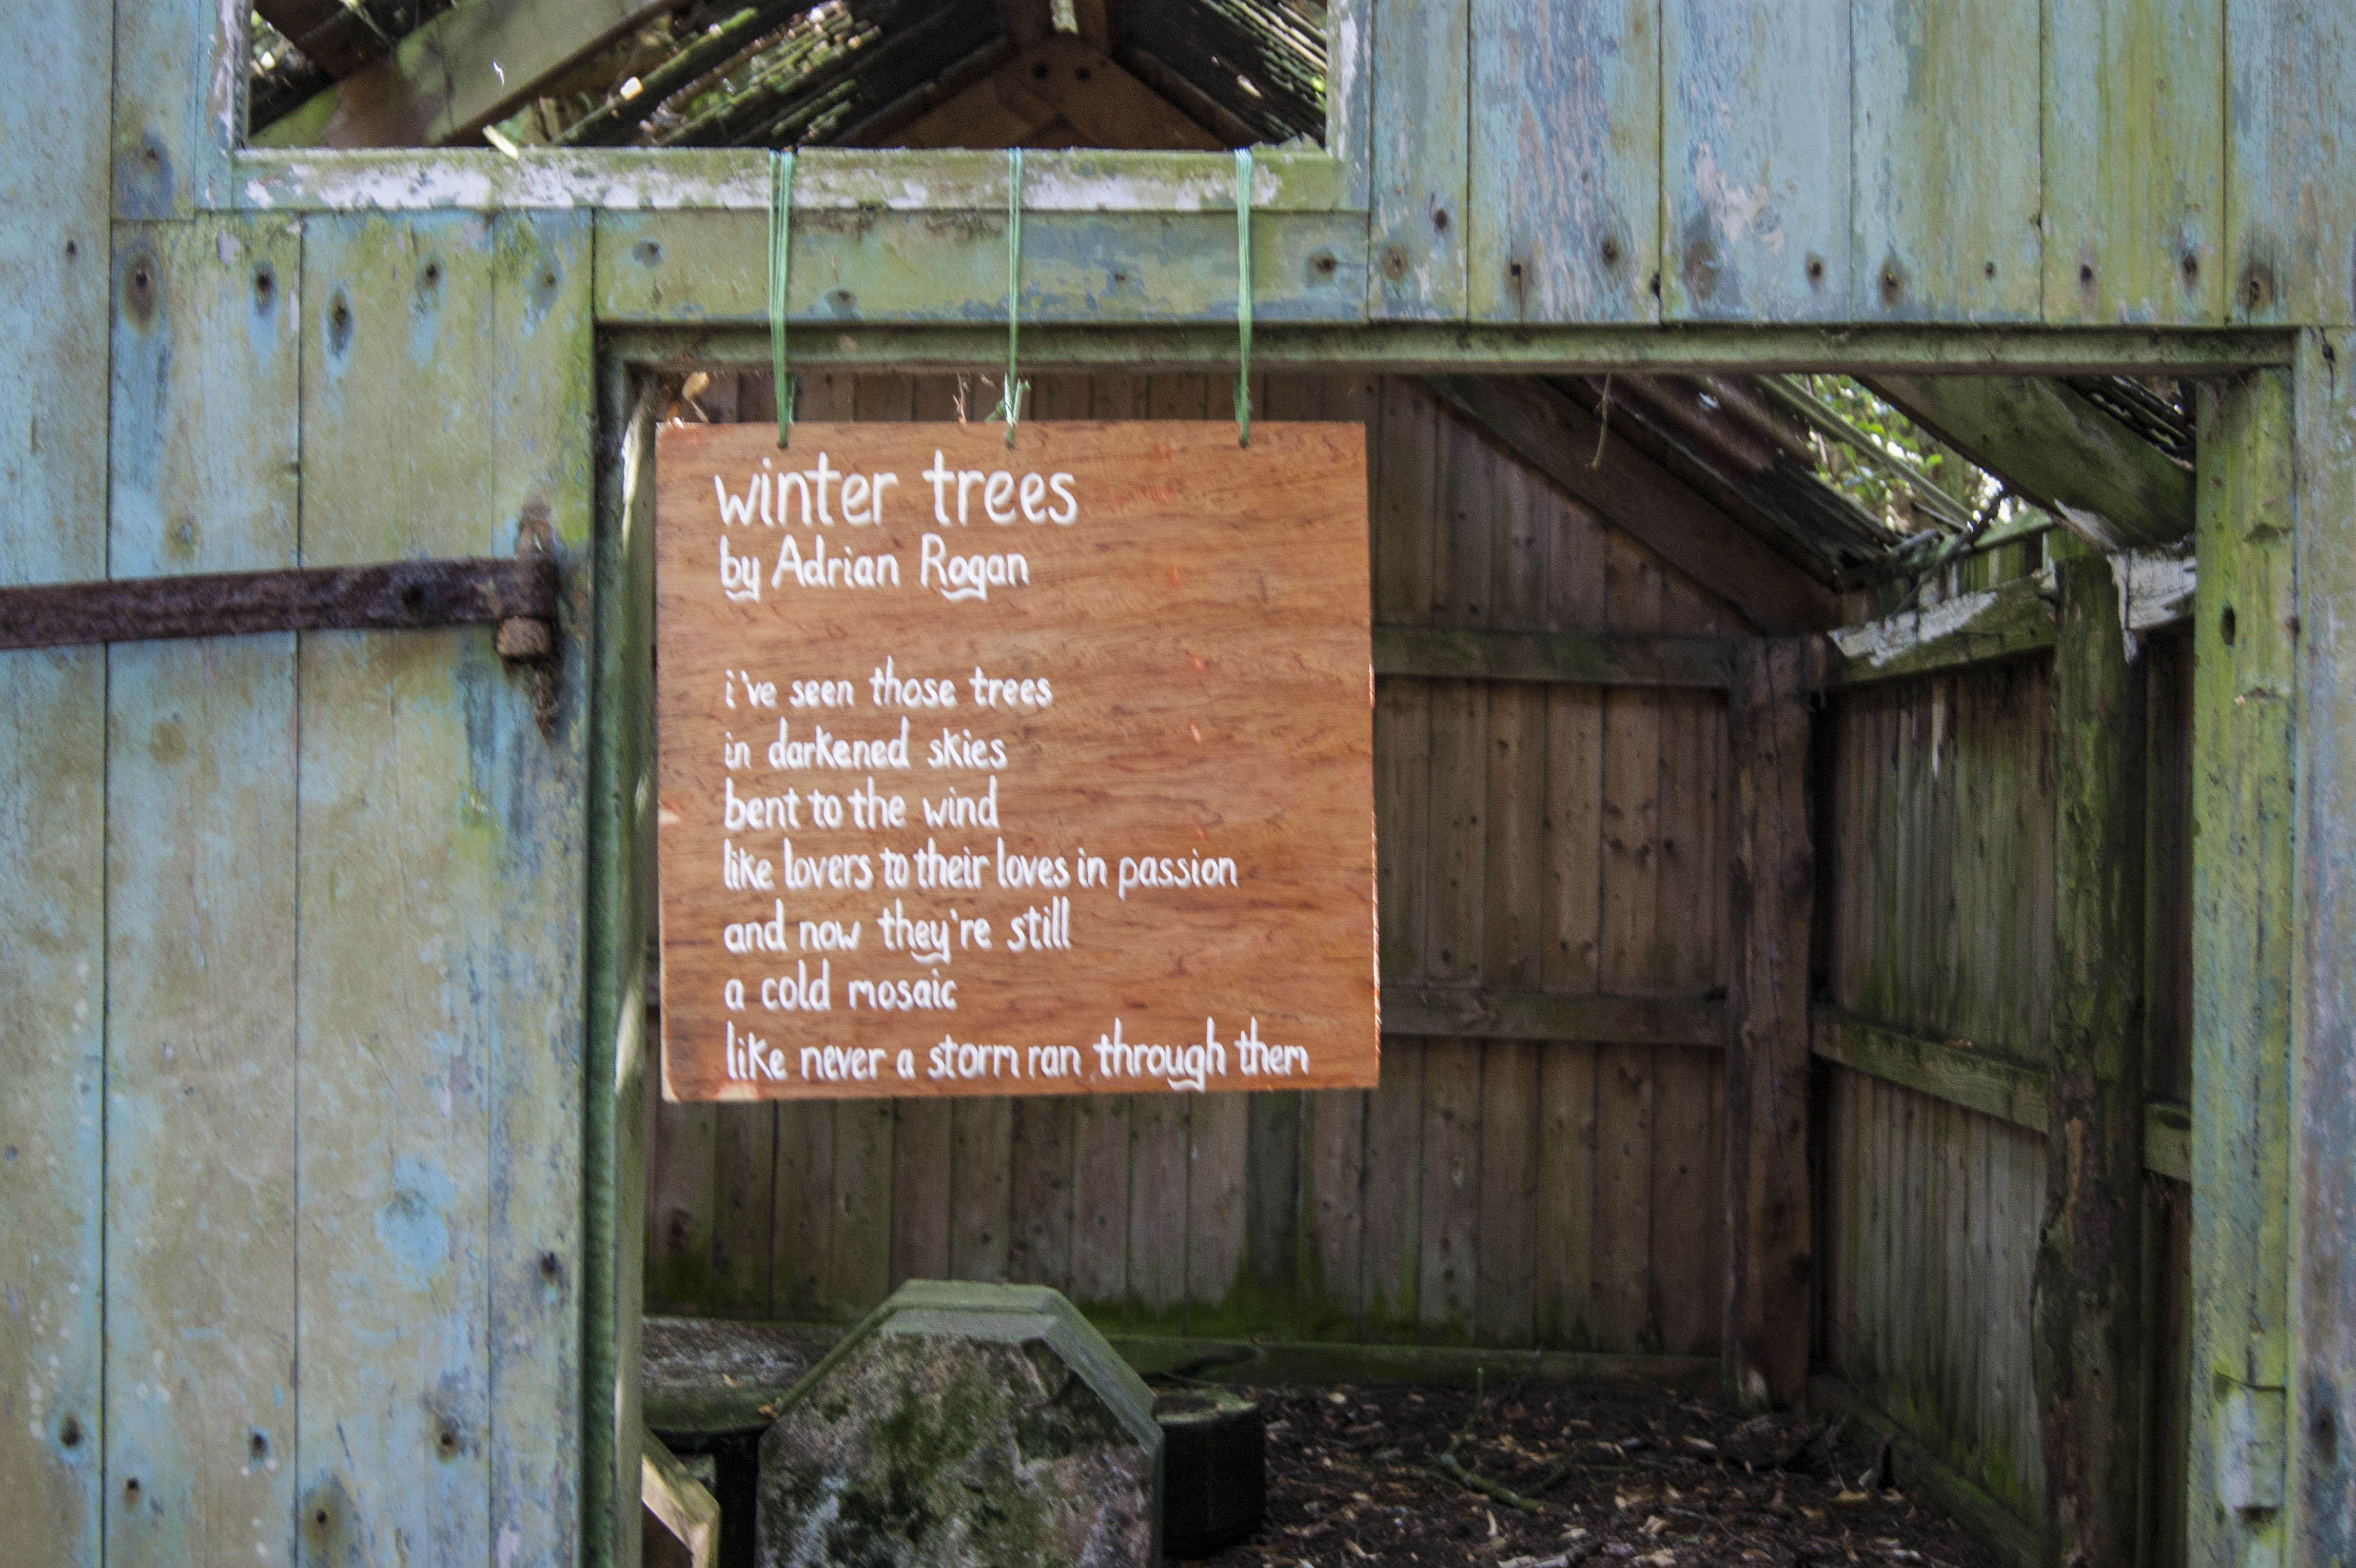 winter trees
by Adrian Rogan
i've seen those trees
in darkened skies
bent to the wind
like lovers to their loves in passion
and now they're still
a cold mosaic
like never a storm ran through them